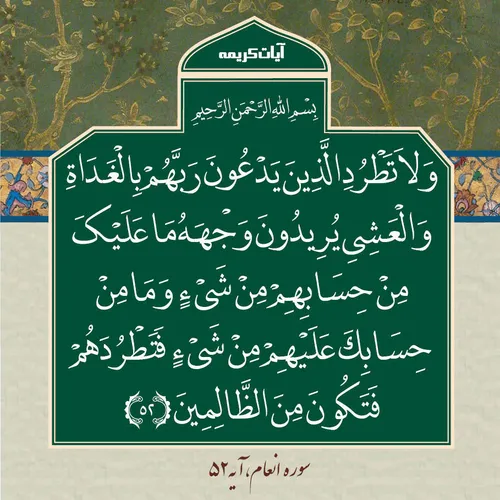 آیات کریمه
بِسْمِ اللهِ الرَّحْمَنِ الرَّحِيمِ
وَلَا تَطْرُدِ الَّذِينَ يَدْعُونَ رَبَّهُمْ بِالْغَدَاةِ
وَالْعَشِيِ يُرِيدُونَ وَجْهَهُ مَا عَلَيْکَ
مِنْ حِسَابِهِمْ مِنْ شَيْءٍ وَمَا مِنْ
حِسَابِكَ عَلَيْهِمْ مِنْ شَيْءٍ فَتَطْرُدَهُمْ
فَتَكُونَ مِنَ الظَّالِمِينَ ﴿۵۲﴾
سوره انعام، آیه ۵۲